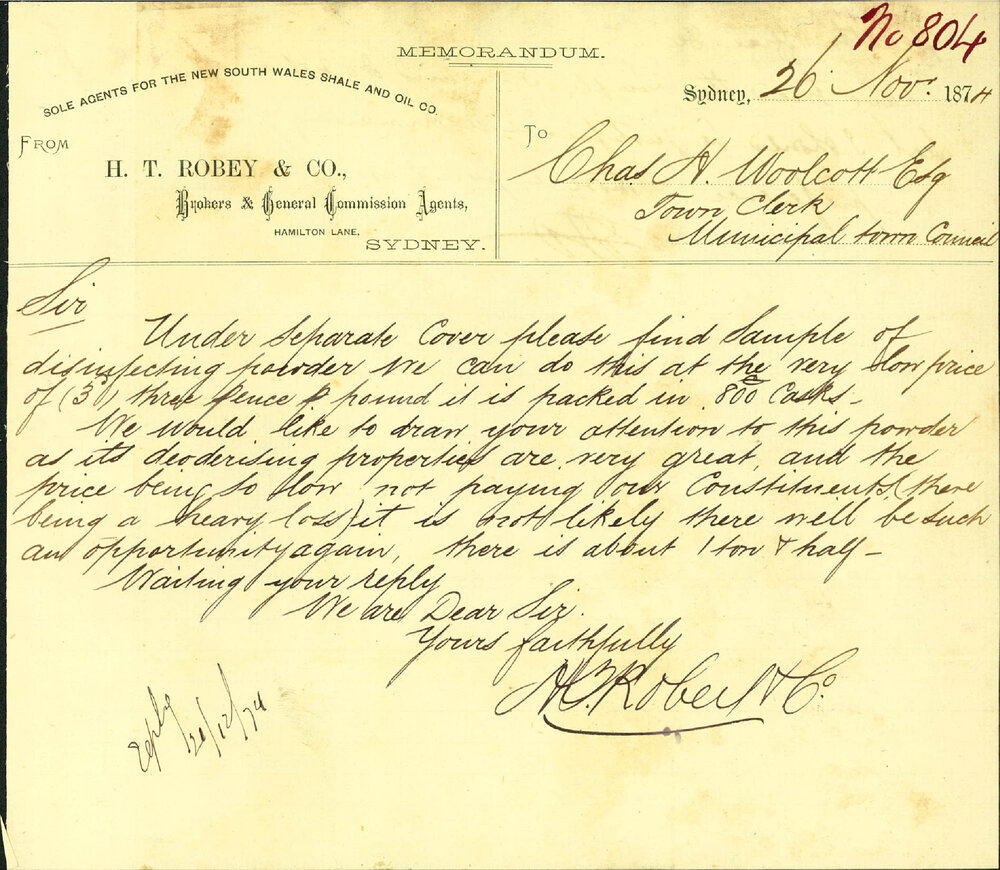 No 804
MEMORANDUM.
SOLE AGENTS FOR THE NEW SOUTH WALES SHALE AND OIL CO.
Sydney, 26 Nov. 1874
FROM
H. T. ROBEY & CO.,
Brokers & General Commission Agents,
HAMILTON LANE,
SYDNEY.
To
Chas H. Woolcott Esq
Town Clerk
Municipal town Council
Sir
Under Separate Cover please find Sample of
disinfecting powder We can do this at the very low price
of (3d) three pence p pound it is packed in 8oo Casks -
We would like to draw your attention to this powder
as its deoderising properties are very great, and the
price being so low not paying our Constituents (there
being a heavy loss) it is not likely there will be such
an opportunity again, there is about 1 ton & half -
Waiting your reply
We are Dear Sir.
Yours faithfully
H. T. Robey & Co.
reply
/12/74